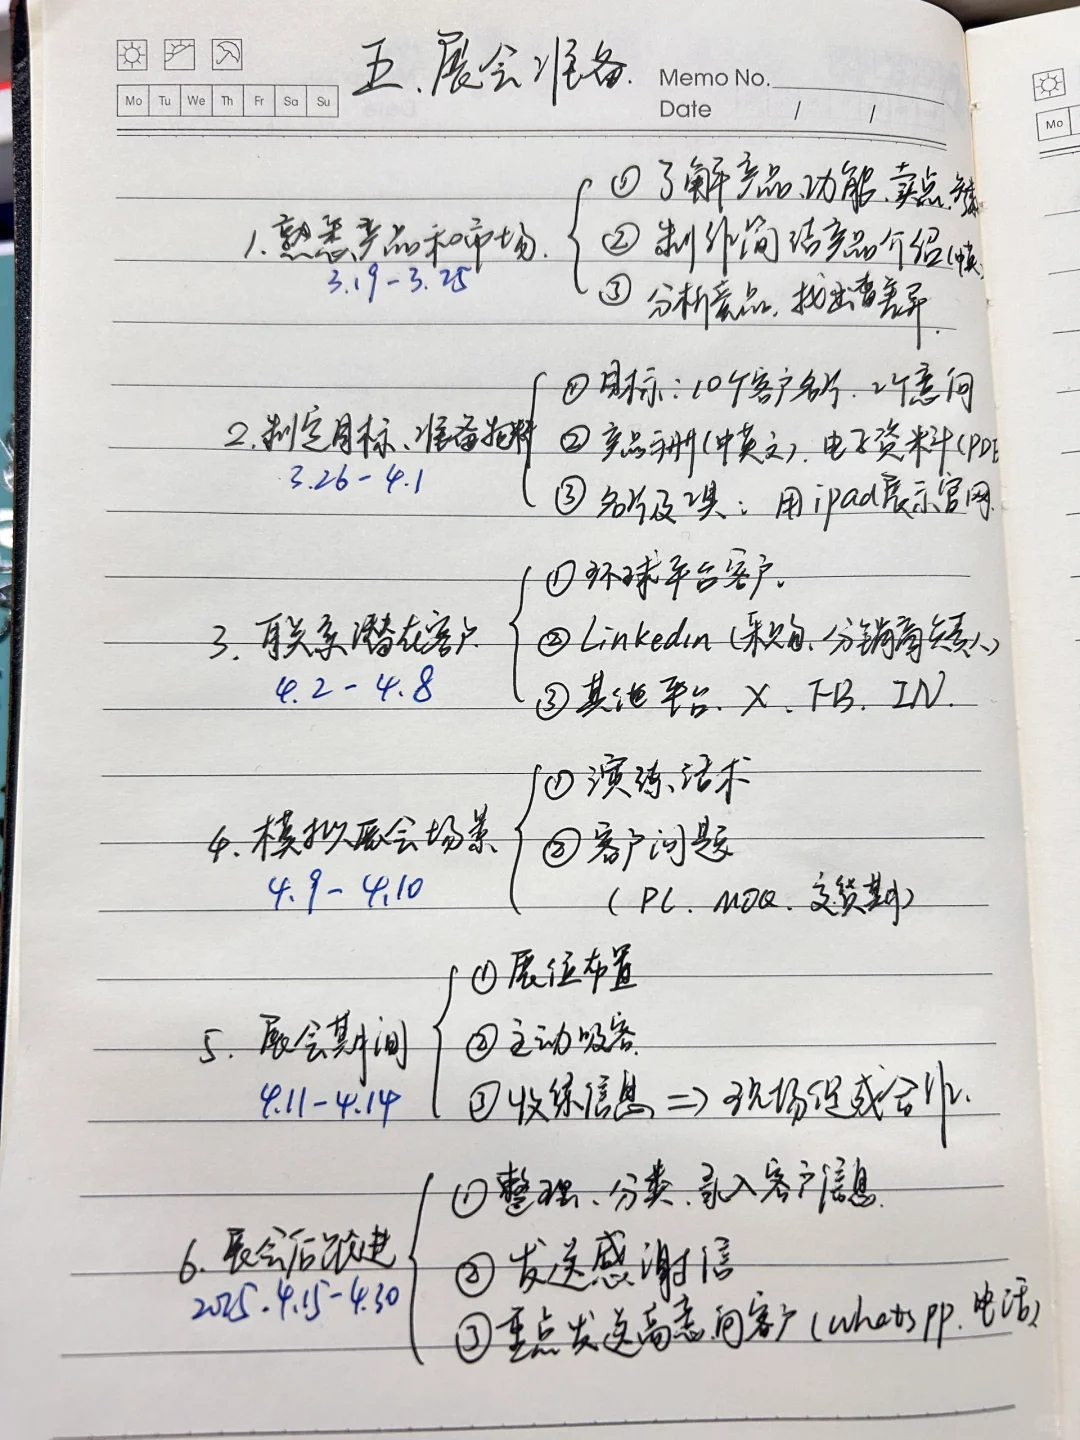 五、展会准备.
Memo No.
Mo Tu We Th Fr Sa Su
Date / /
Mo
1.熟悉产品和市场.
3.19-3.25
① 了解产品、功能、卖点、
② 制作简洁产品介绍(中英
③ 分析竞品,找出差异.
2.制定目标、准备物料
3.26-4.1
① 目标:10个客户名片、2个意向
② 产品手册(中英文)、电子资料(PDF
③ 名片及工具:用ipad展示官网.
3、联系潜在客户
4.2-4.8
① 环球平台客户.
② Linkedin(采购、分销商负责人)
③ 其他平台、X、FB、IN.
4、模拟展会场景
4.9-4.10
① 演练、话术
② 客户问题
(PL、MOQ、交货期)
5.展会期间
4.11-4.14
① 展位布置
② 主动吸客
③ 收集信息 => 现场促成合作.
6.展会后跟进
2025.4.15-4.30
① 整理、分类、录入客户信息
② 发送感谢信
③ 重点发送高意向客户(whatspp、电话)